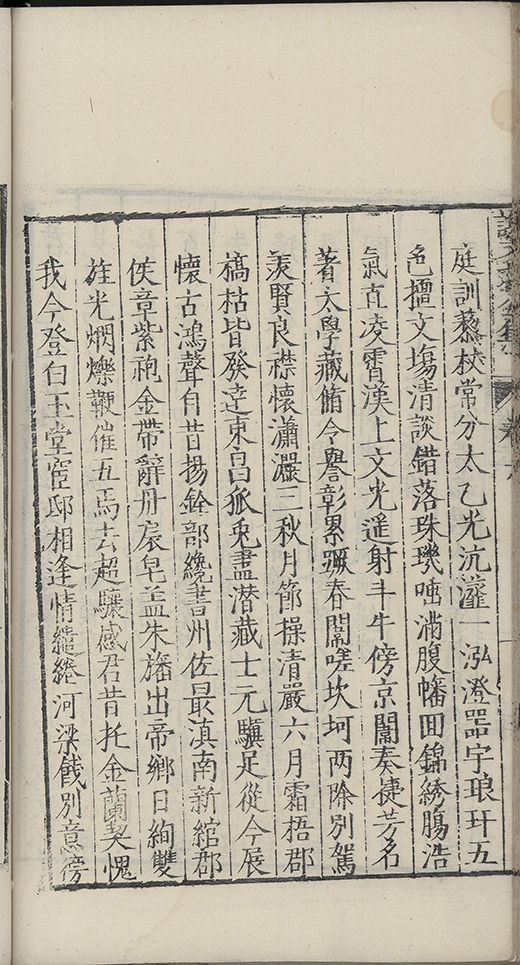 庭訓藜杖常分太乙光沆瀣一泓澄噐宇琅玕五
色擅文塲清談錯落珠璣唾滿腹幡囬錦綉膓浩
氣直凌霄漢上文光遥射斗牛傍京闈奏捷芳名
著太學藏脩令譽彰累蹶春闈嗟坎坷两除别駕
羡賢良襟懷瀟灑三秋月節操清嚴六月霜梧郡
槁枯皆發達東昌狐兎盡潜藏士元驥足從今展
懷古鴻聲自昔揚銓部纔書州佐最滇南新綰郡
侯章紫袍金帶辭丹扆皂盖朱旛出帝鄉日絢雙
旌光熌爍鞭催五馬去超驤感君昔托金蘭契愧
我今登白玉堂宦邸相逢情繾綣河梁餞别意傍